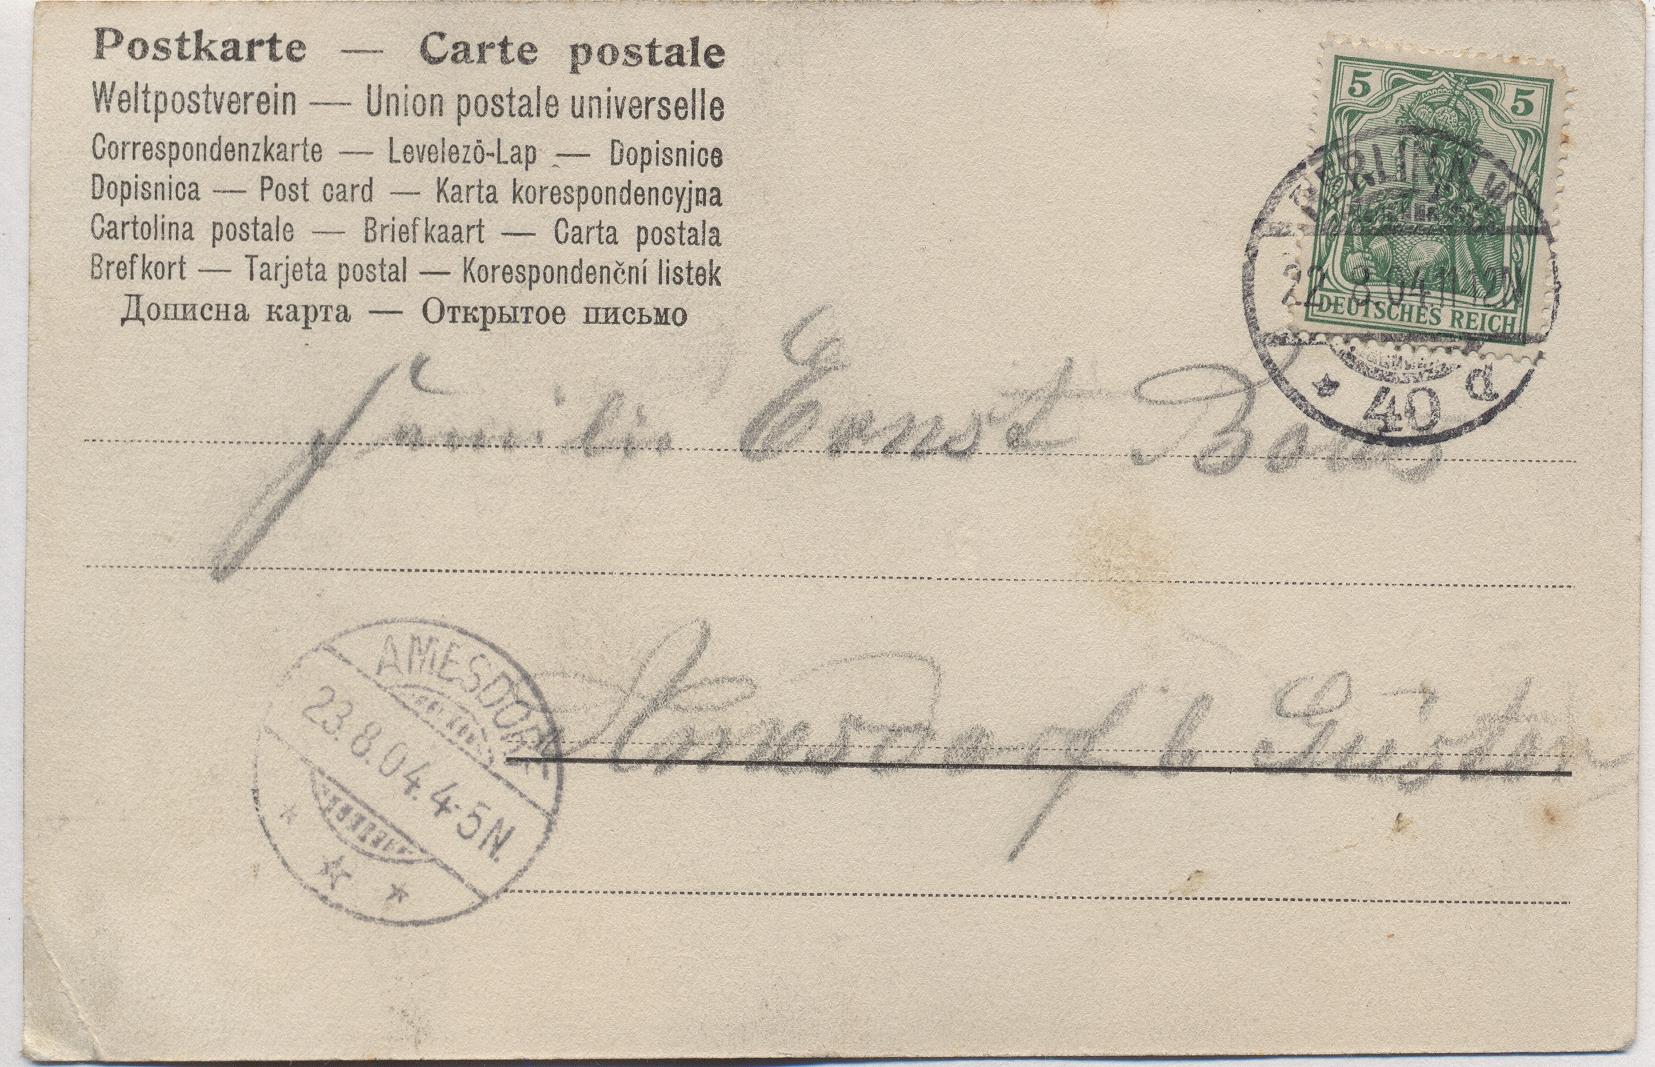 Postkarte — Carte postale
Weltpostverein — Union postale universelle
Correspondenzkarte — Levelezõ-Lap — Dopisnice
Dopisnica — Post card — Karta korespondencyjna
Cartolina postale — Briefkaart — Carta postala
Brefkort — Tarjeta postal — Korespondenčni listek
Дописна карта — Открытое письмо
5 5
DEUTSCHES REICH
BERLIN N.W.
22.8.04.11-12N
* 40 d
Familie Ernst
AMESDORF
23.8.04.4-5N.
b Güsten